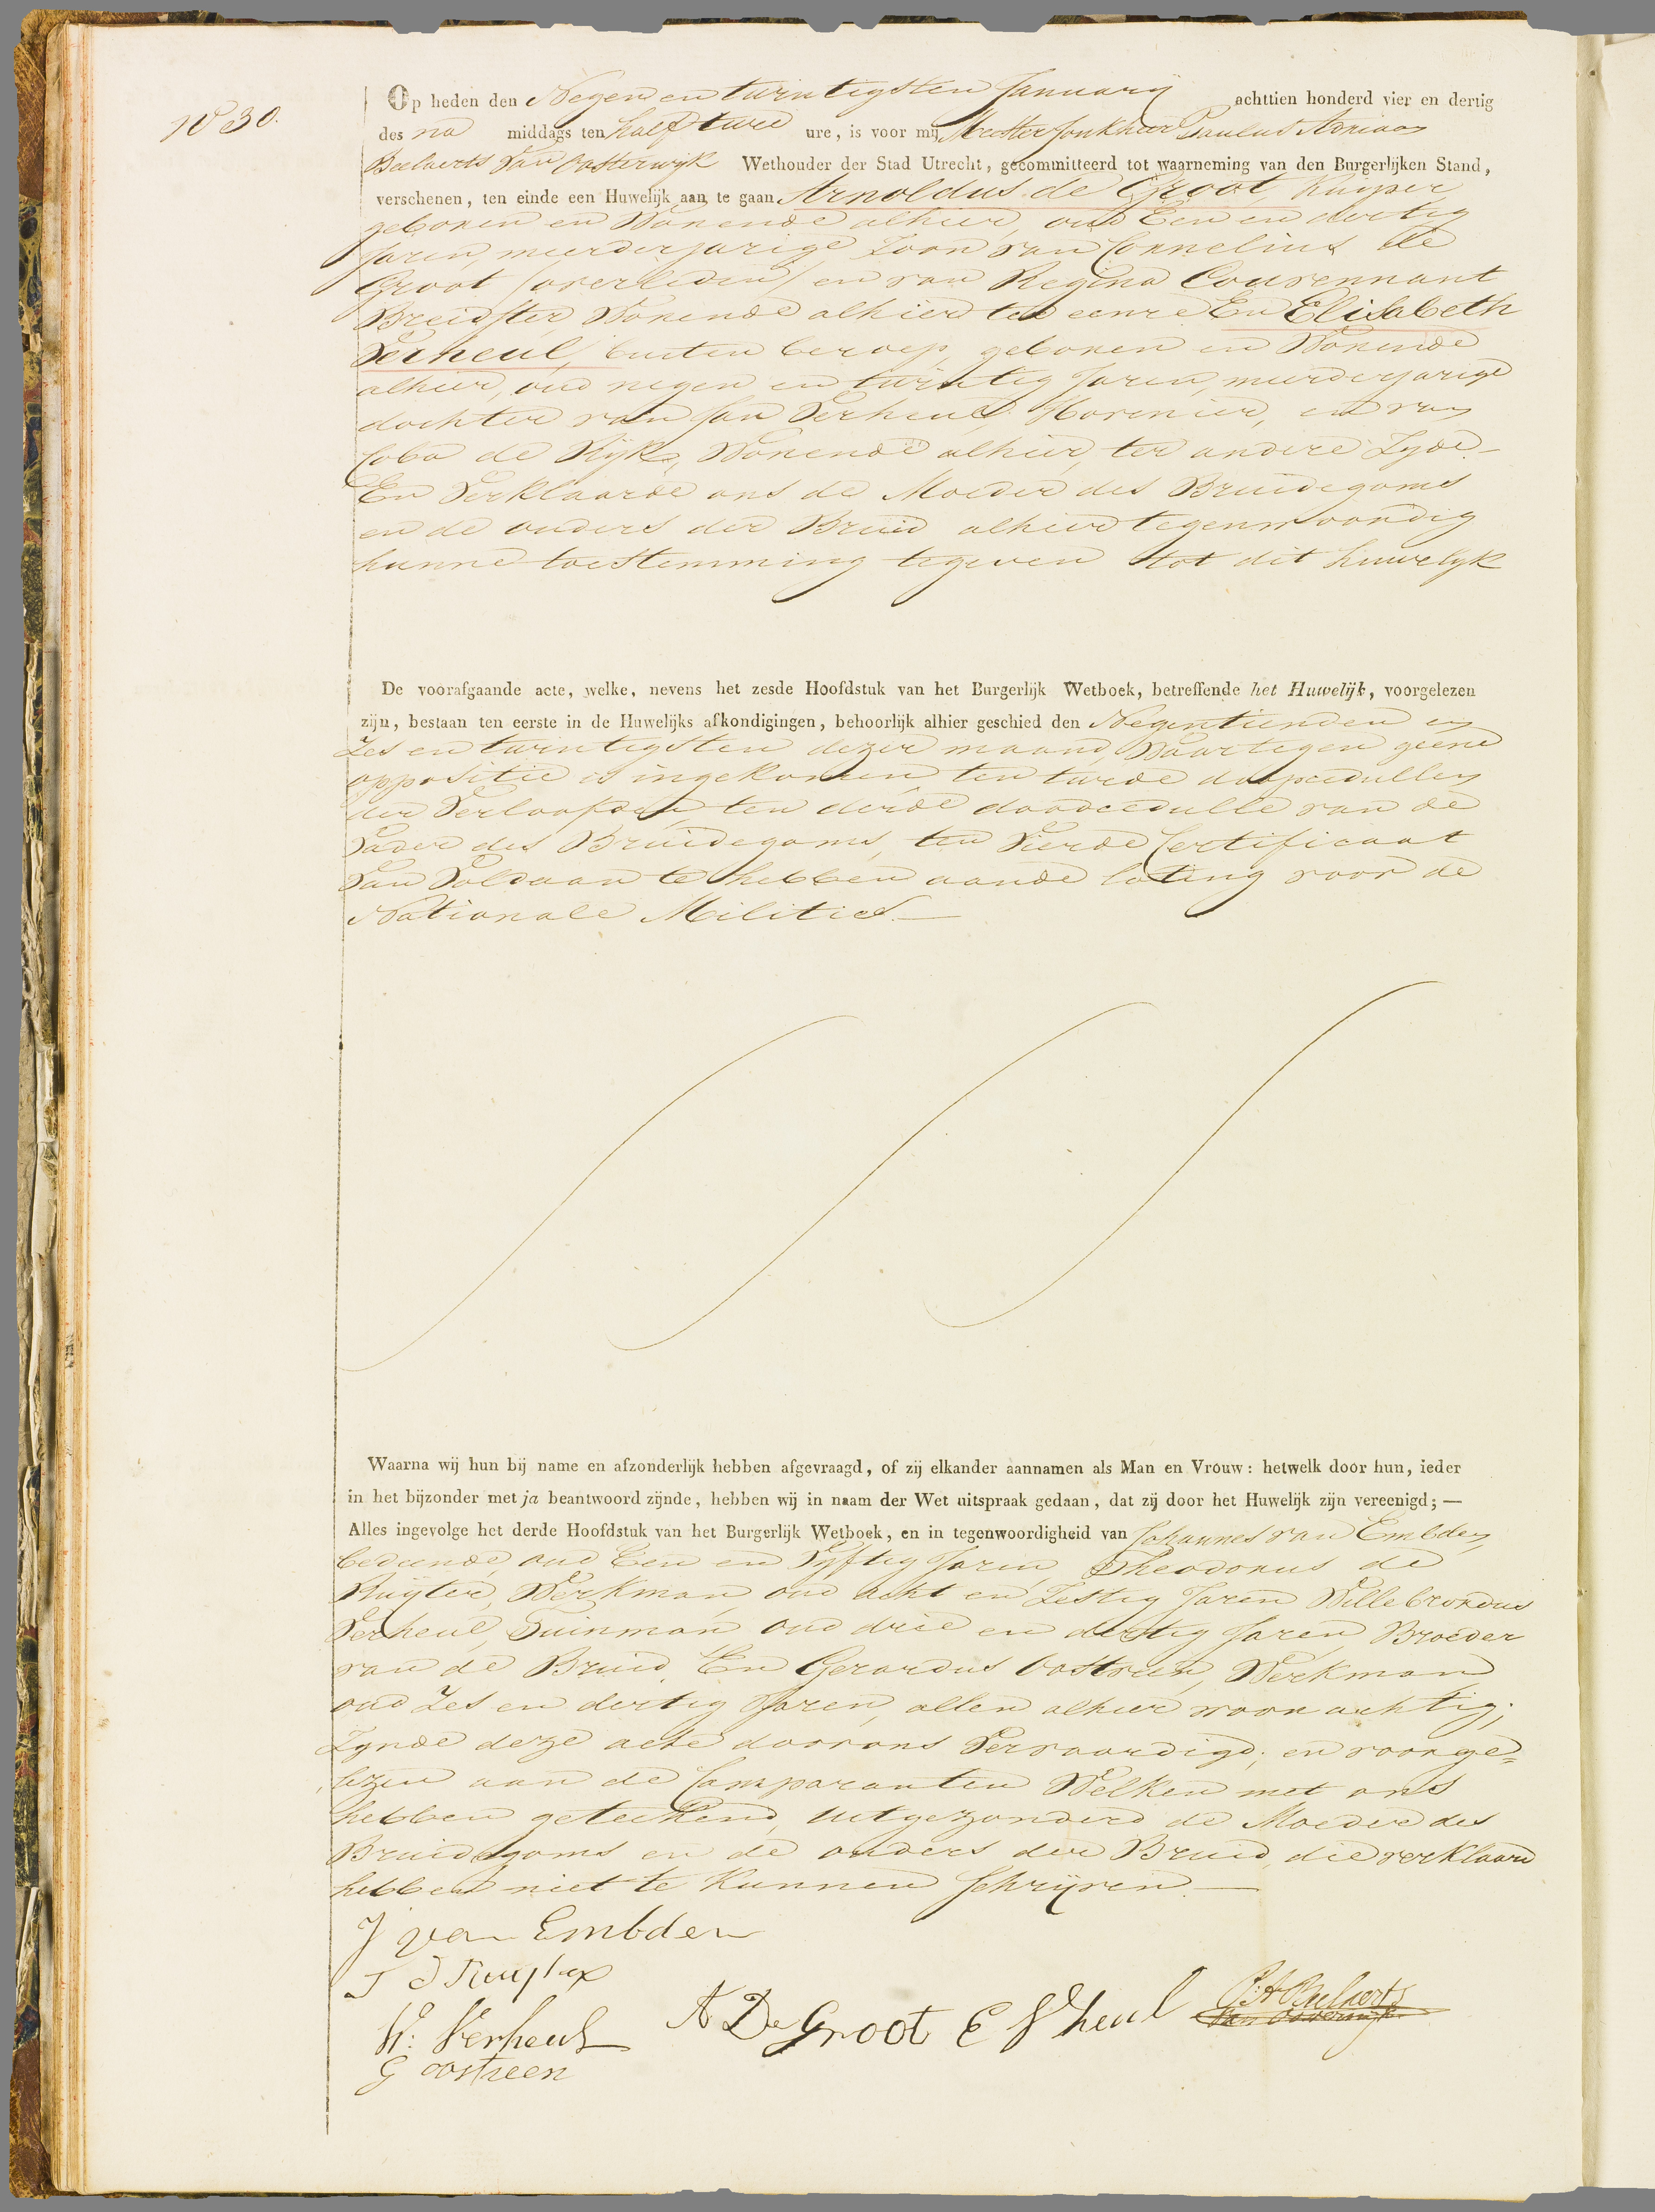 No 30.
Op heden den Negen en twintigsten January achttien honderd vier en dertig
des na middags ten half twee ure, is voor mij Meester Jonkheer Paulus Adriaan
Beelaerts van Oosterwijk Wethouder der Stad Utrecht, gecommitteerd tot waarneming van den Burgerlijken Stand,
verschenen, ten einde een Huwelijk aan te gaan Arnoldus de Groot, Kuiper
geboren en Wonende alhier, oud Een en dertig
Jaren, meerderjarige Zoon van Cornelius de
Groot (overleden) en van Regina Couvennant
Breidster, Wonende alhier ter eenre En Elisabeth
Verheul, buiten beroep, geboren en Wonende
alhier, oud negen en twintig Jaren, meerderjarige
dochter van Jan Verheul, Hovenier, en van
Coba de Rijk, Wonende alhier, ter andere Zyde –
En Verklaarde ons de Moeder des Bruidegoms
en de ouders der Bruid alhier tegenwoordig
hunne toestemming tegeven tot dit huwelyk
De voorafgaande acte, welke, nevens het zesde Hoofdstuk van het Burgerlijk Wetboek, betreffende het Huwelijk, voorgelezen
zijn, bestaan ten eerste in de Huwelijks afkondigingen, behoorlijk alhier geschied den Negentienden en
Zes en twintigsten dezer maand, Waartegen geene
oppositie is ingekomen, ten twede doopcedullen
der Verloofden, ten derde doodcedulle van de
Vader des Bruidegoms, ten Vierde Certificaat
Van Voldaan te hebben aande loting voor de
Nationale Militie. —
Waarna wij hun bij name en afzonderlijk hebben afgevraagd, of zij elkander aannamen als Man en Vrouw: hetwelk door hun, ieder
in het bijzonder met ja beantwoord zijnde, hebben wij in naam der Wet uitspraak gedaan, dat zij door het Huwelijk zijn vereenigd; —
Alles ingevolge het derde Hoofdstuk van het Burgerlijk Wetboek, en in tegenwoordigheid van Johannes van Embden,
bediende, oud Een en Vyftig Jaren, Theodorus de
Ruijter, Werkman, oud acht en Zestig Jaren Willebrordus
Verheul, Tuinman oud drie en dertig Jaren, Broeder
van de Bruid, En Gerardus Oostreen, Werkman
oud Zes en dertig Jaren, allen alhier woonachtig;
Zynde deze acte door ons Vervaardigd, en voorge=
lezen aan de Comparanten Welken met ons
hebben geteekend, uitgezonderd de Moeder des
Bruidegoms en de ouders der Bruid, die verklaard
hebben niet te kunnen Schrijven. —
J van Embden
T D Ruyter
W: Verheul
G oostreen
A De Groot E V heul
P: A Beelaerts
van Oosterwijk